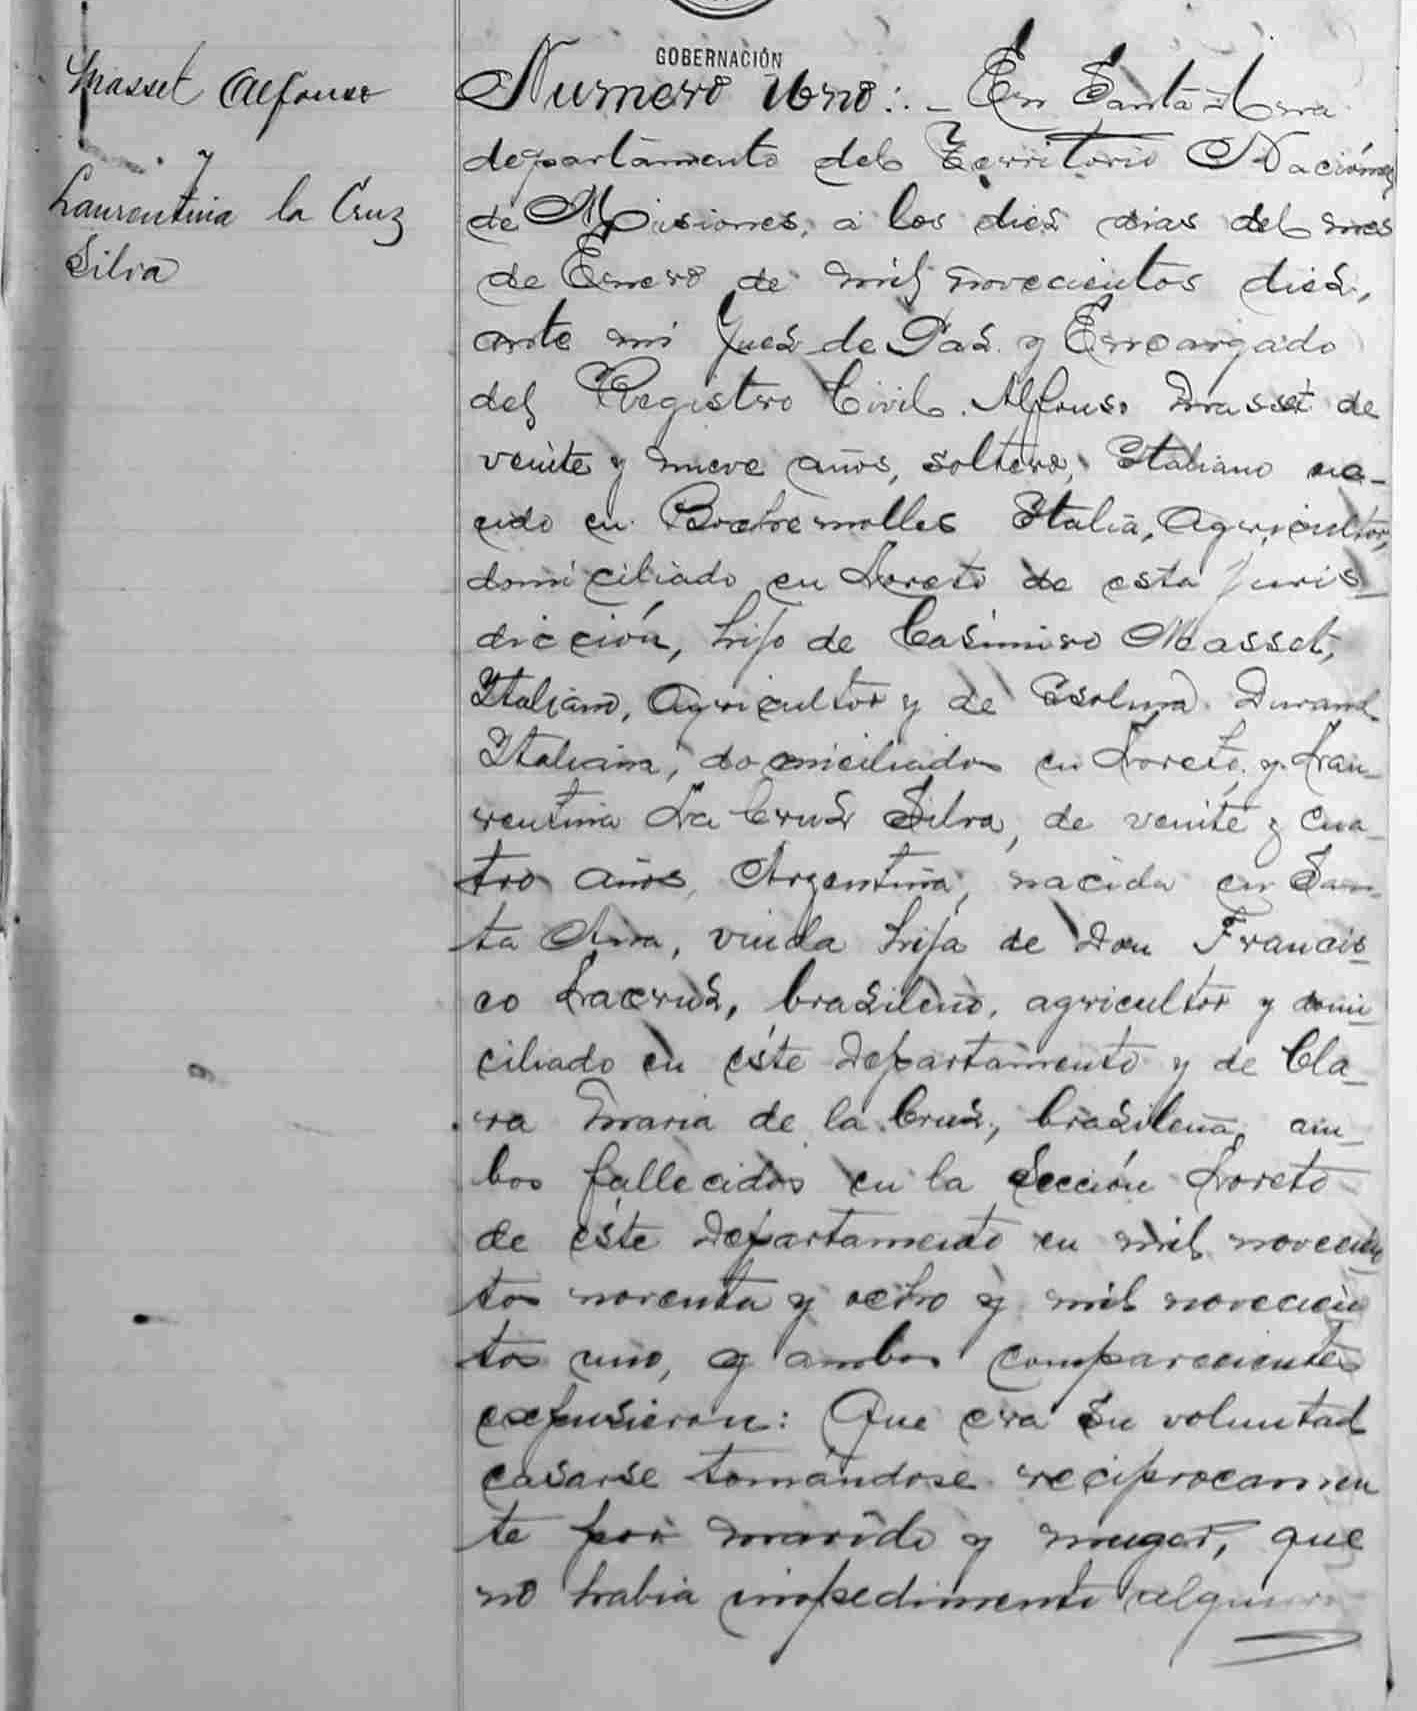 GOBERNACIÓN
Masset Alfonso
y
Laurentina la Cruz
Silva
Numero Uno:. - En Santa Ana
departamento del Territorio Nacional
de Misiones, a los diez dias del mes
de Enero de mil novecientos diez,
ante mi Juez de Paz y Encargado
del Registro Civil. Alfonso Masset de
veinte y nueve años, soltero, Italiano na-
cido en Italia, Agricultor,
domiciliado en Loreto de esta juris-
dicción, hijo de Casimiro Masset,
Italiano, Agricultor y de Durand
Italiana, domiciliados en Loreto, y Lau-
rentina La Cruz Silva, de veinte y cua-
tro años, Argentina, nacida en San-
ta Ana, viuda hija de Don Francis-
co Lacruz, brasileno, agricultor y domi-
ciliado en éste Departamento y de Cla-
ra Maria de la Cruz, brasilena, am-
bos fallecidos en la Sección Loreto
de éste Departamento en mil novecien
tos noventa y ocho y mil novecien
tos uno, y ambos comparecientes
expusieron: Que era su voluntad
casarse tomándose reciprocamen
te por marido y muger, que
no habia impedimento alguno